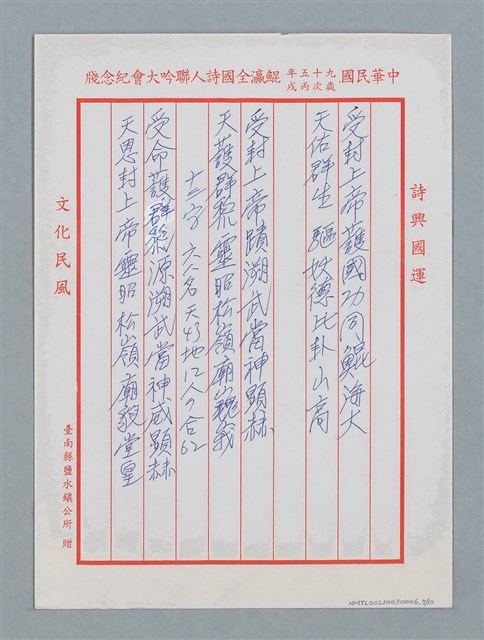 中華民國九十五年歲次丙戌鯤瀛全國詩人聯吟大會紀念牋
詩興國運
受封上帝護國功同鯤海大
天佑群生驅妖德比卦山高
受封上帝蹟溯武當神顯赫
天護群黎靈昭松嶺廟巍峩
十二字 名天43地12人7合62
受命護群黎源溯武當神威顯赫
天恩封上帝靈昭松嶺廟貌堂皇
文化民風
臺南縣鹽水鎮公所 贈